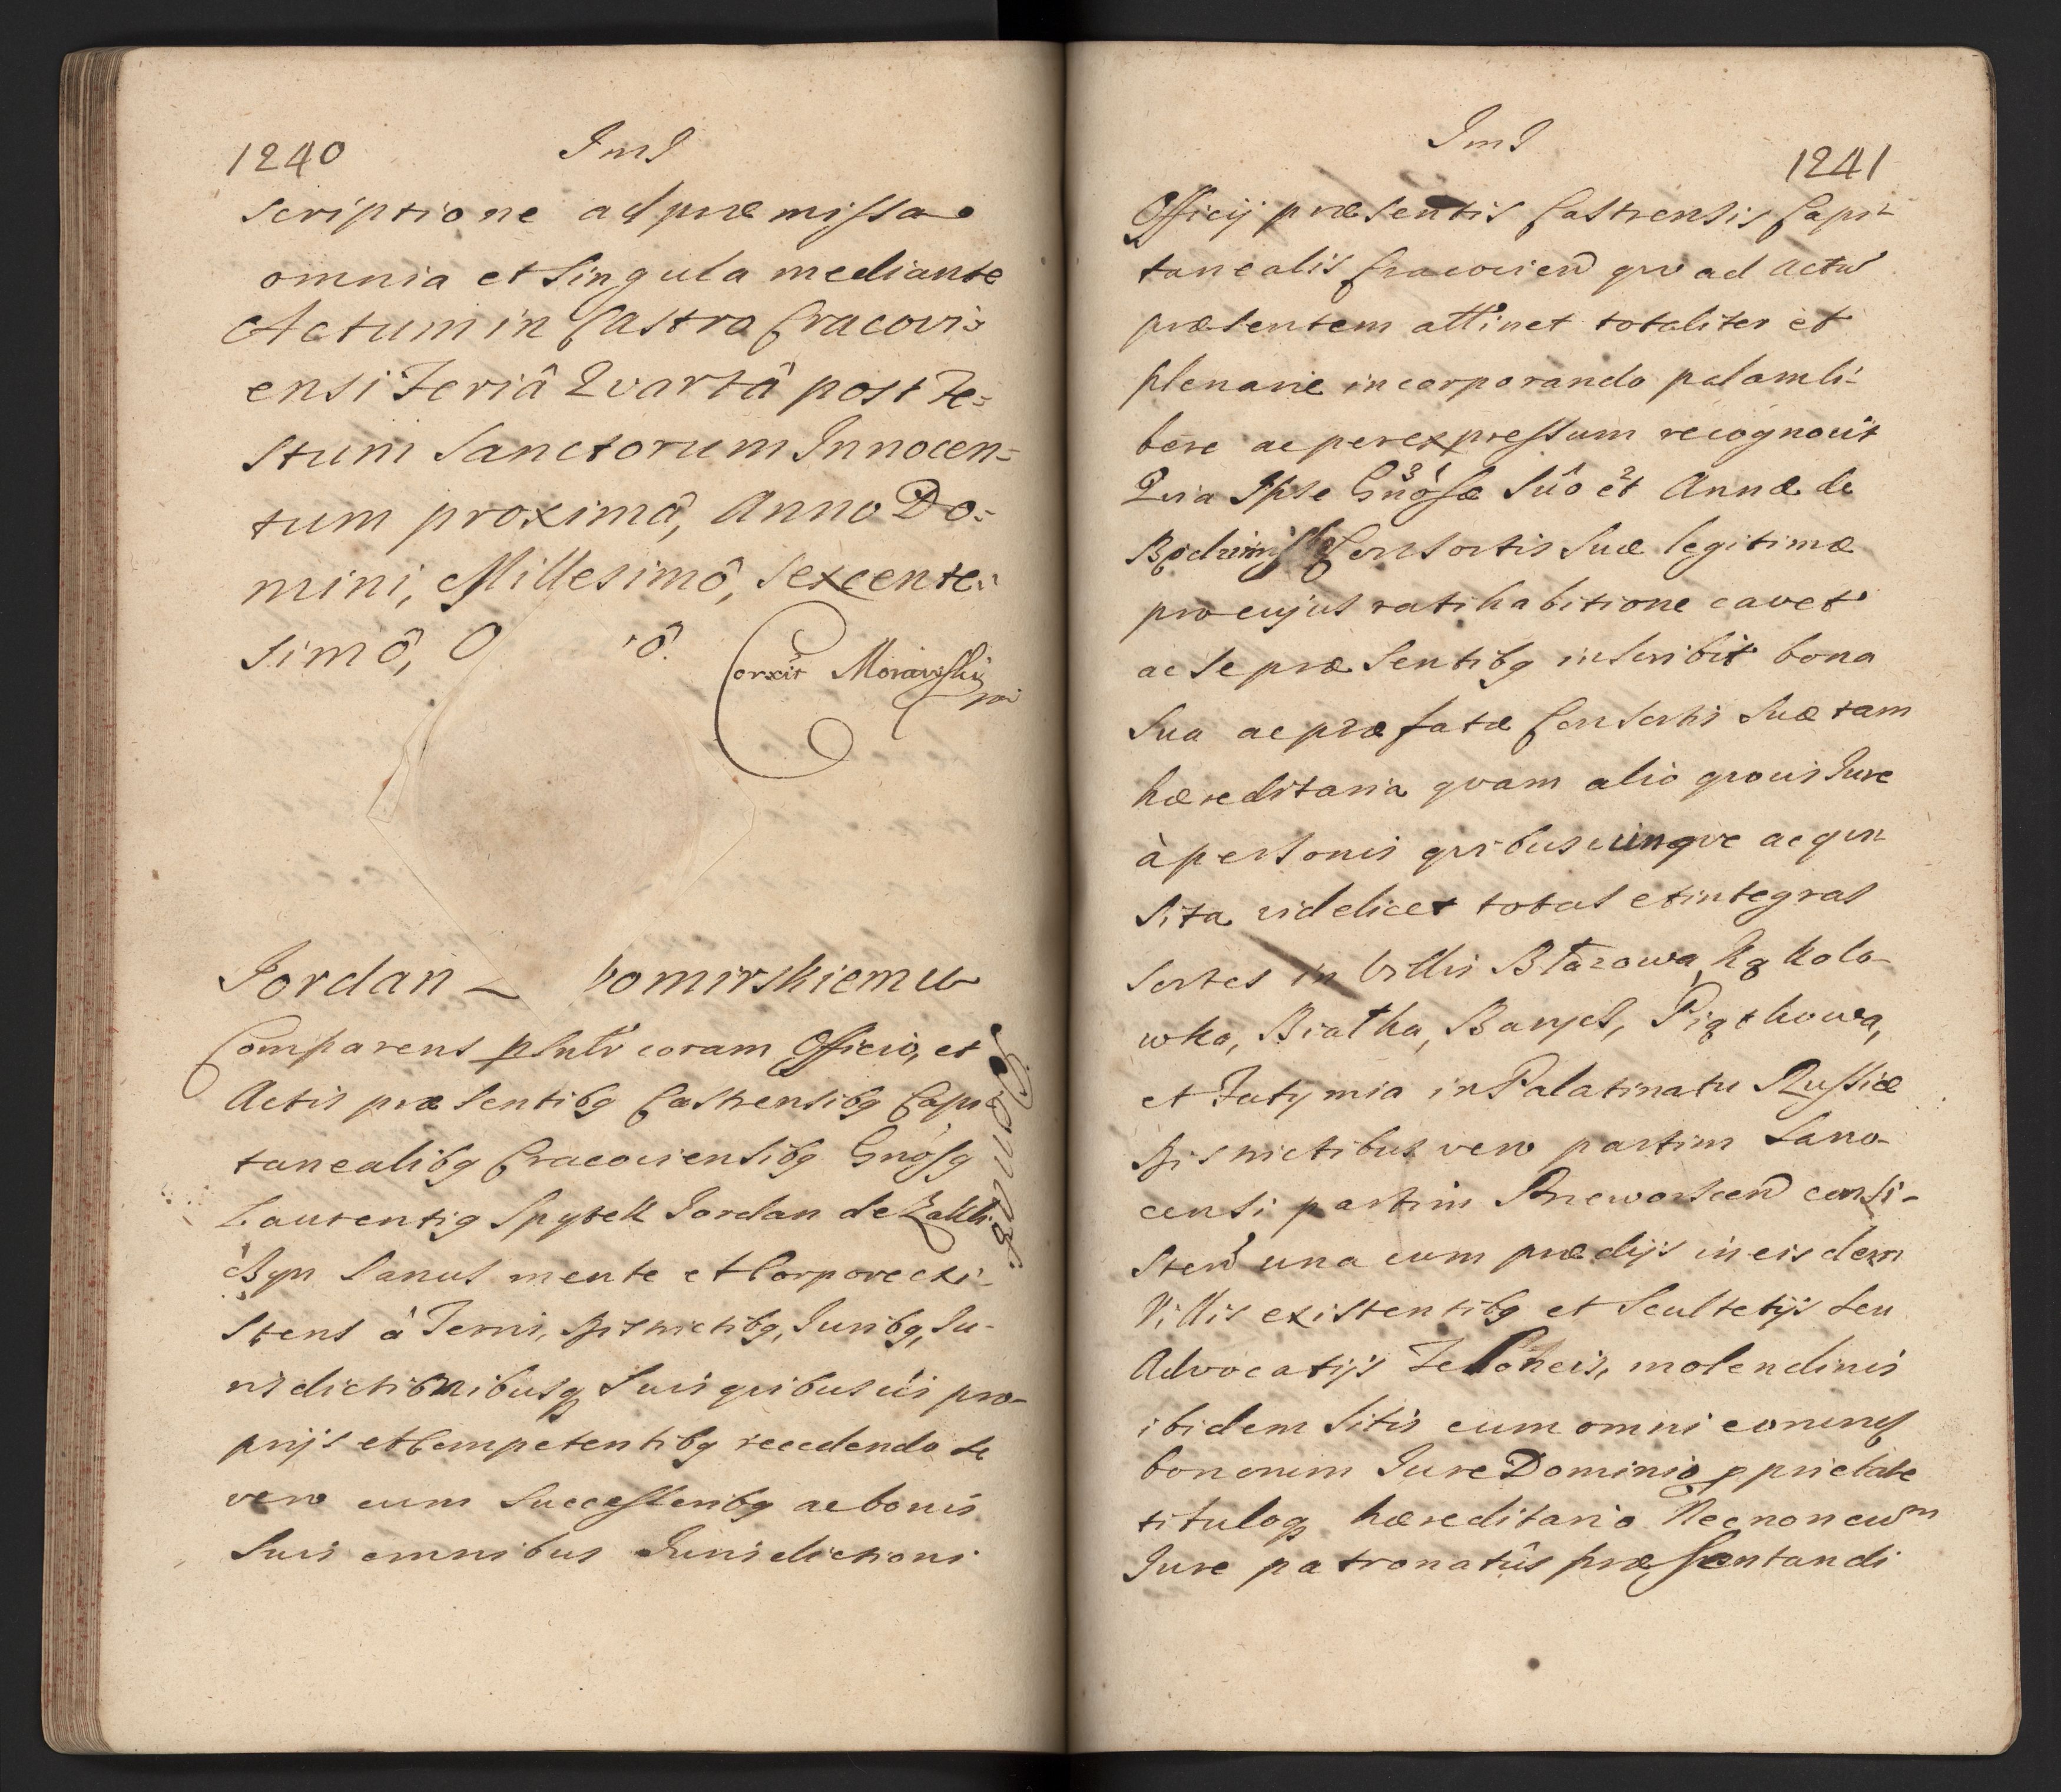 1240 Ind
scriptione ad præmissa
omnia et singula mediante
Actum in Castro Cracovi=
ensi Feriâ Qvartâ post Fe=
stum Sanctorum Innocen=
tum proximâ, Anno Do=
mini, Millesimô, Sexcente=
simô, O ô.
Corxit Morawski
Jordan – bomirskiemu
Comparens pslntr coram Officio, et
Actis præsentibq Castrensibq Capi
tanealibq Cracoviensibq Gnosq
Laurentiq Spytek Jordan de Zakli
czyn Sanus mente et Corpore exi-
stens â Terris, Districtibq, Juribq, Ju-
risdictionibusq suis qvibusvis pro-
prijs et Competentibq recedendo se
vero cum Successoribq ac bonis
suis omnibus Jurisdictioni
Ind 1241
Officij præsentis Castrensis Capi-
tanealis Cracovien qvo ad Actū
præsentem attinet totaliter et
plenarie incorporando palam li-
bere ac per expressum recognovit
Qvia Ipse Gnosæ suô et Annæ de
Consortis suæ legitimæ
pro cujus ratihabitione cavet
ac se præsentibq inscribit bona
sua ac præfatæ Consortis suæ tam
hæreditaria qvam alio qvovis Jure
à personis qvibuscunqve acqvi
sita videlicet totas et integras
sortes in Villis Błazowa, Kąkolo-
wka, Białka, Barycz, Piątkowa,
et Futyma in Palatinatu Russiæ
Districtibus vero partim Sano-
censi partim Przeworscen consi-
sten una cum prædijs in eisdem
Villis existentibq et Scultetijs seu
Advocatijs molendinis
ibidem sitis cum omni eorund
bonorum Jure Dominio pprietate
tituloq hæreditario Necnon cum
Jure patronatûs præsentandi